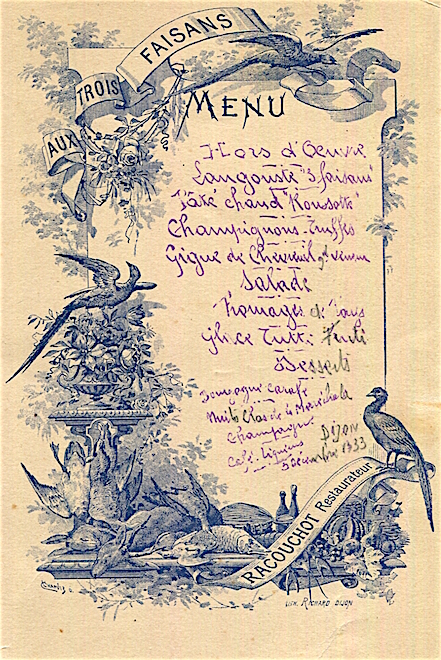 AUX TROIS FAISANS
MENU
Hors d'Oeuvre
Langouste "3 faisans"
Pâté chaud "Roussotte"
Champignons-Truffes
Gigue de Chevreuil
Salade
Fromages de Pays
Glace Tutti Frutti
Desserts
Bourgogne Carafe
Nuits Clos de la Maréchale
Champagne
Café-Liqueurs
DIJON
5 décembre 1933
RACOUCHOT Restaurateur
LITH. RICHARD DIJON